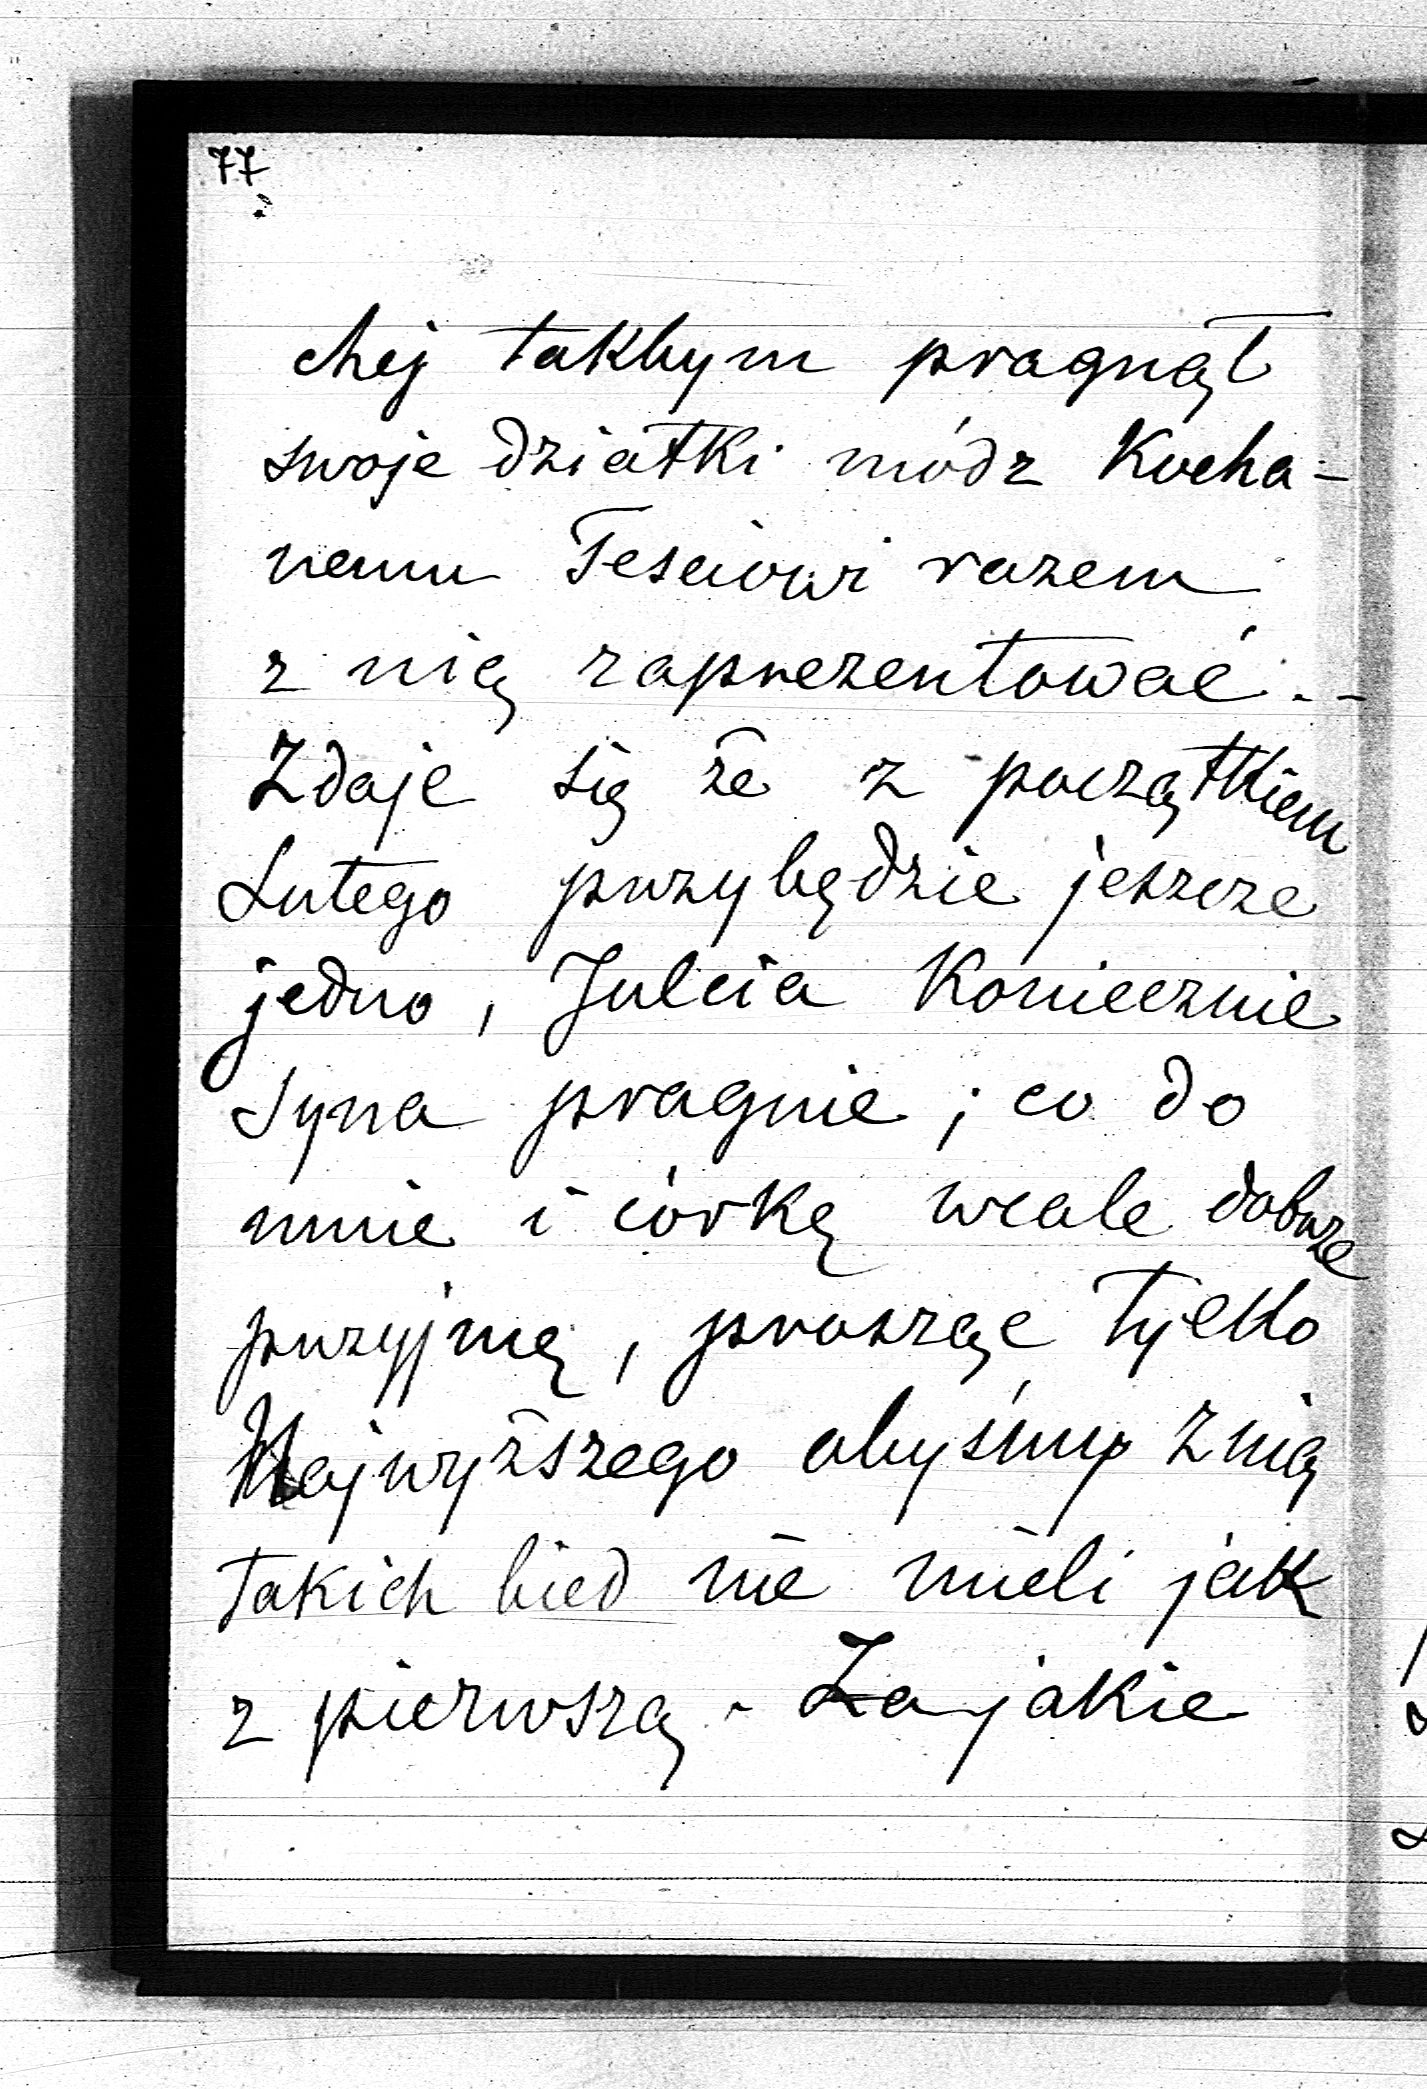 77
chej takbym pragnął
swoje dziatki módz Kocha-
nemu Teściowi razem
z nią zaprezentować. -
Zdaje się że z początkiem
Lutego przybędzie jeszcze
jedno, Julcia Koniecznie
Syna pragnie; co do
mnie i córkę wcale dobrze
przyjmę, prosząc tylko
Najwyższego abyśmy z nią
takich bied nie mieli jak
z pierwszą. Za jakie